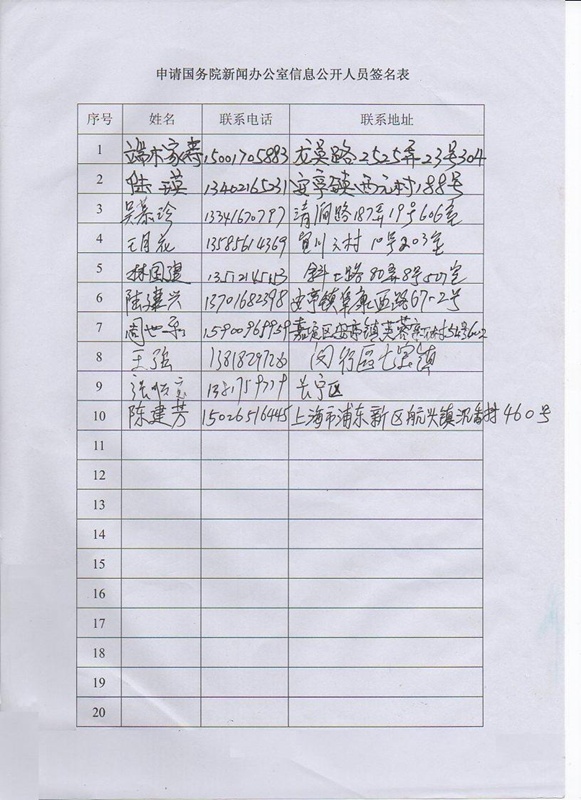 申请国务院新闻办公室信息公开人员签名表
序号 姓名 联系电话 联系地址
1 端木家寿 15001705883 龙吴路2525弄23号304
2 陆瑛 13402165231 安亭镇西元村188号
3 吴荣珍 13341670797 清涧路187弄19号606室
4 王月花 13585614369 宜川三村10号203室
5 林国建 斜土路80弄8号507室
6 陆建兴 13701682398 安亭镇阜康西路67-2号
7 周 15900969959 嘉定区安亭镇芙蓉
8 王强 闵行区七宝镇
9 张 长宁区
10 陈建芳 15026516445 上海市浦东新区航头镇沉香村460号
11
12
13
14
15
16
17
18
19
20